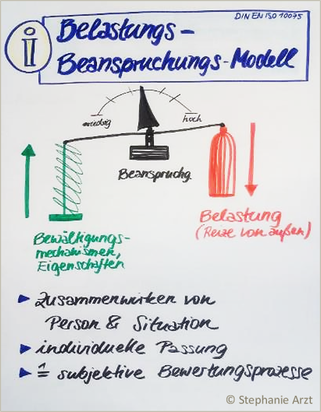 DIN EN ISO 10075
i
Belastungs-
Beanspruchungs-Modell
niedrig
hoch
Beanspruchg.
Belastung
(Reize von außen)
Bewältigungs-
mechanismen,
Eigenschaften
Zusammenwirken von
Person & Situation
individuelle Passung
≙ subjektive Bewertungsprozesse
© Stephanie Arzt